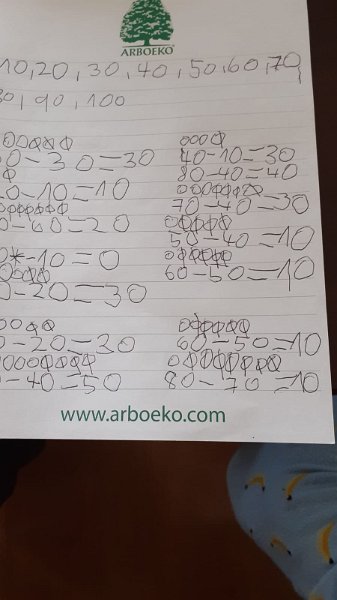 ARBOEKO
10, 20, 30, 40, 50, 60, 70,
0, 90, 100
0-30=30
40-10=30
0-10=10
80-40=40
0-60=20
70-40=30
0-10=0
50-40=10
0-20=30
60-50=10
0-20=30
60-50=10
0-40=50
80-70=10
www.arboeko.com